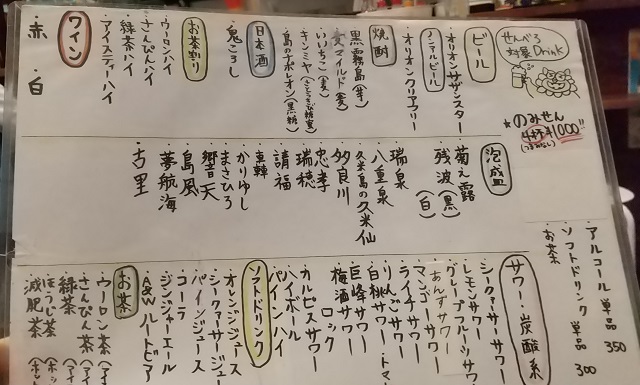 せんべろ
対象Drink
★のみせん
4杯¥1,000!!
ビール
・オリオンサザンスター
ノンアルビール
・オリオンクリアフリー
焼酎
・黒霧島(芋)
・いいちこ(麦)
・島のナポレオン(黒糖)
日本酒
・鬼ころし
お茶割り
・ウーロンハイ
・さんぴんハイ
・緑茶ハイ
・アイスティーハイ
ワイン
・赤・白
泡盛
・菊之露
・残波(黒)(白)
・瑞泉
・八重泉
・久米島の久米仙
・多良川
・忠孝
・瑞穂
・請福
・かりゆし
・まさひろ
・響天
・島風
・夢航海
・古里
・アルコール単品350
・ソフトドリンク単品300
・お茶
サワー・炭酸系
・シークァーサーサワー
・レモンサワー
・グレープフルーツサワ
・あんずサワー
・マンゴーサワー
・ライチサワー
・りんごサワー
・白桃サワー・トマ
・巨峰サワー
・梅酒サワー
ロック
・カルピスサワー
・ハイボール
・パインハイ
ソフトドリンク
・オレンジジュース
・シークァーサージュー
・パインジュース
・コーラ
・ジンジャーエール
・A&Wルートビア
お茶
・ウーロン茶(アイ
・さんぴん茶(アイ
・緑茶(アイ
・ほうじ茶(ホッ
・減肥茶(ホッ